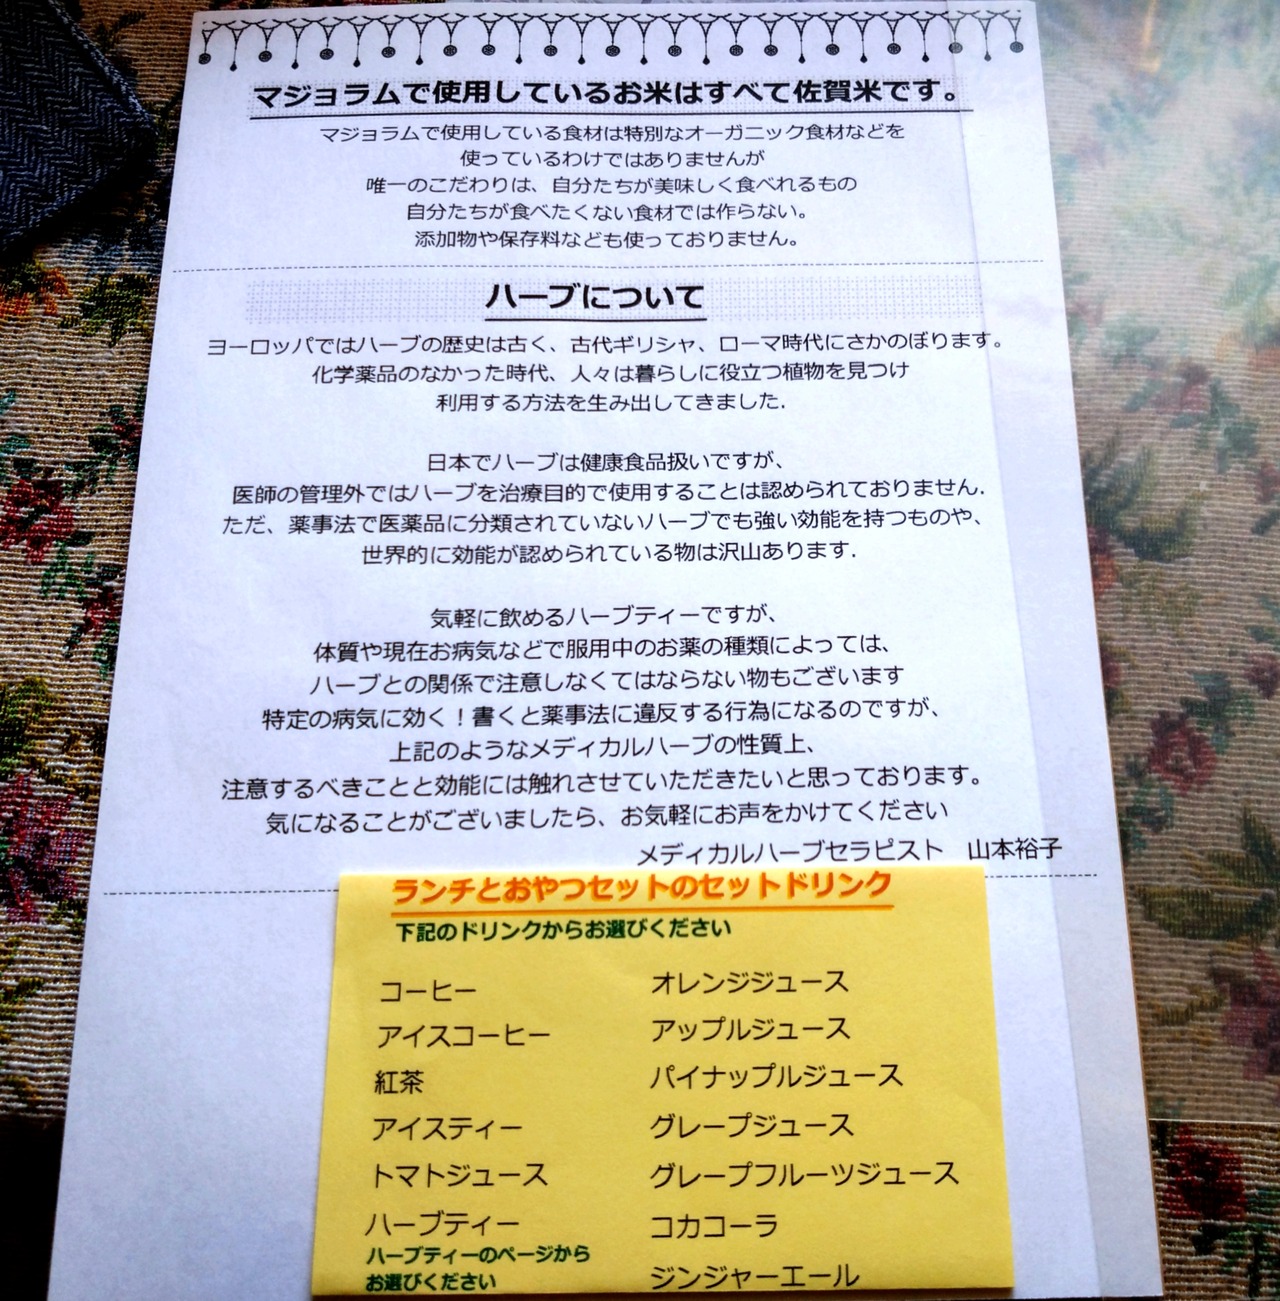 マジョラムで使用しているお米はすべて佐賀米です。
マジョラムで使用している食材は特別なオーガニック食材などを
使っているわけではありませんが
唯一のこだわりは、自分たちが美味しく食べれるもの
自分たちが食べたくない食材では作らない。
添加物や保存料なども使っておりません。
ハーブについて
ヨーロッパではハーブの歴史は古く、古代ギリシャ、ローマ時代にさかのぼります。
化学薬品のなかった時代、人々は暮らしに役立つ植物を見つけ
利用する方法を生み出してきました.
日本でハーブは健康食品扱いですが、
医師の管理外ではハーブを治療目的で使用することは認められておりません.
ただ、薬事法で医薬品に分類されていないハーブでも強い効能を持つものや、
世界的に効能が認められている物は沢山あります.
気軽に飲めるハーブティーですが、
体質や現在お病気などで服用中のお薬の種類によっては、
ハーブとの関係で注意しなくてはならない物もございます
特定の病気に効く！書くと薬事法に違反する行為になるのですが、
上記のようなメディカルハーブの性質上、
注意するべきことと効能には触れさせていただきたいと思っております。
気になることがございましたら、お気軽にお声をかけてください
メディカルハーブセラピスト　山本裕子
ランチとおやつセットのセットドリンク
下記のドリンクからお選びください
コーヒー
アイスコーヒー
紅茶
アイスティー
トマトジュース
ハーブティー
ハーブティーのページから
お選びください
オレンジジュース
アップルジュース
パイナップルジュース
グレープジュース
グレープフルーツジュース
コカコーラ
ジンジャーエール